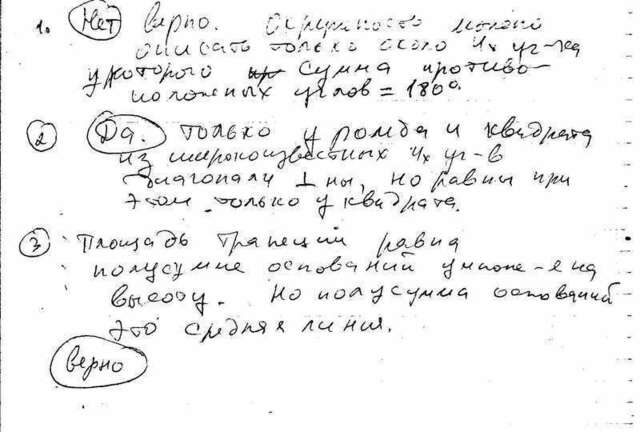 1. Нет верно. Окружность можно
описать только около 4х уг-ка
у которого сумма противо-
положных углов = 180°.
2 Да. Только у ромба и квадрата
из широкоизвестных 4х уг-в
диагонали ⊥ ны, но равны при
этом только у квадрата.
3 Площадь трапеции равна
полусумме оснований умноже-е на
высоту. Но полусумма оснований
это средняя линия.
верно